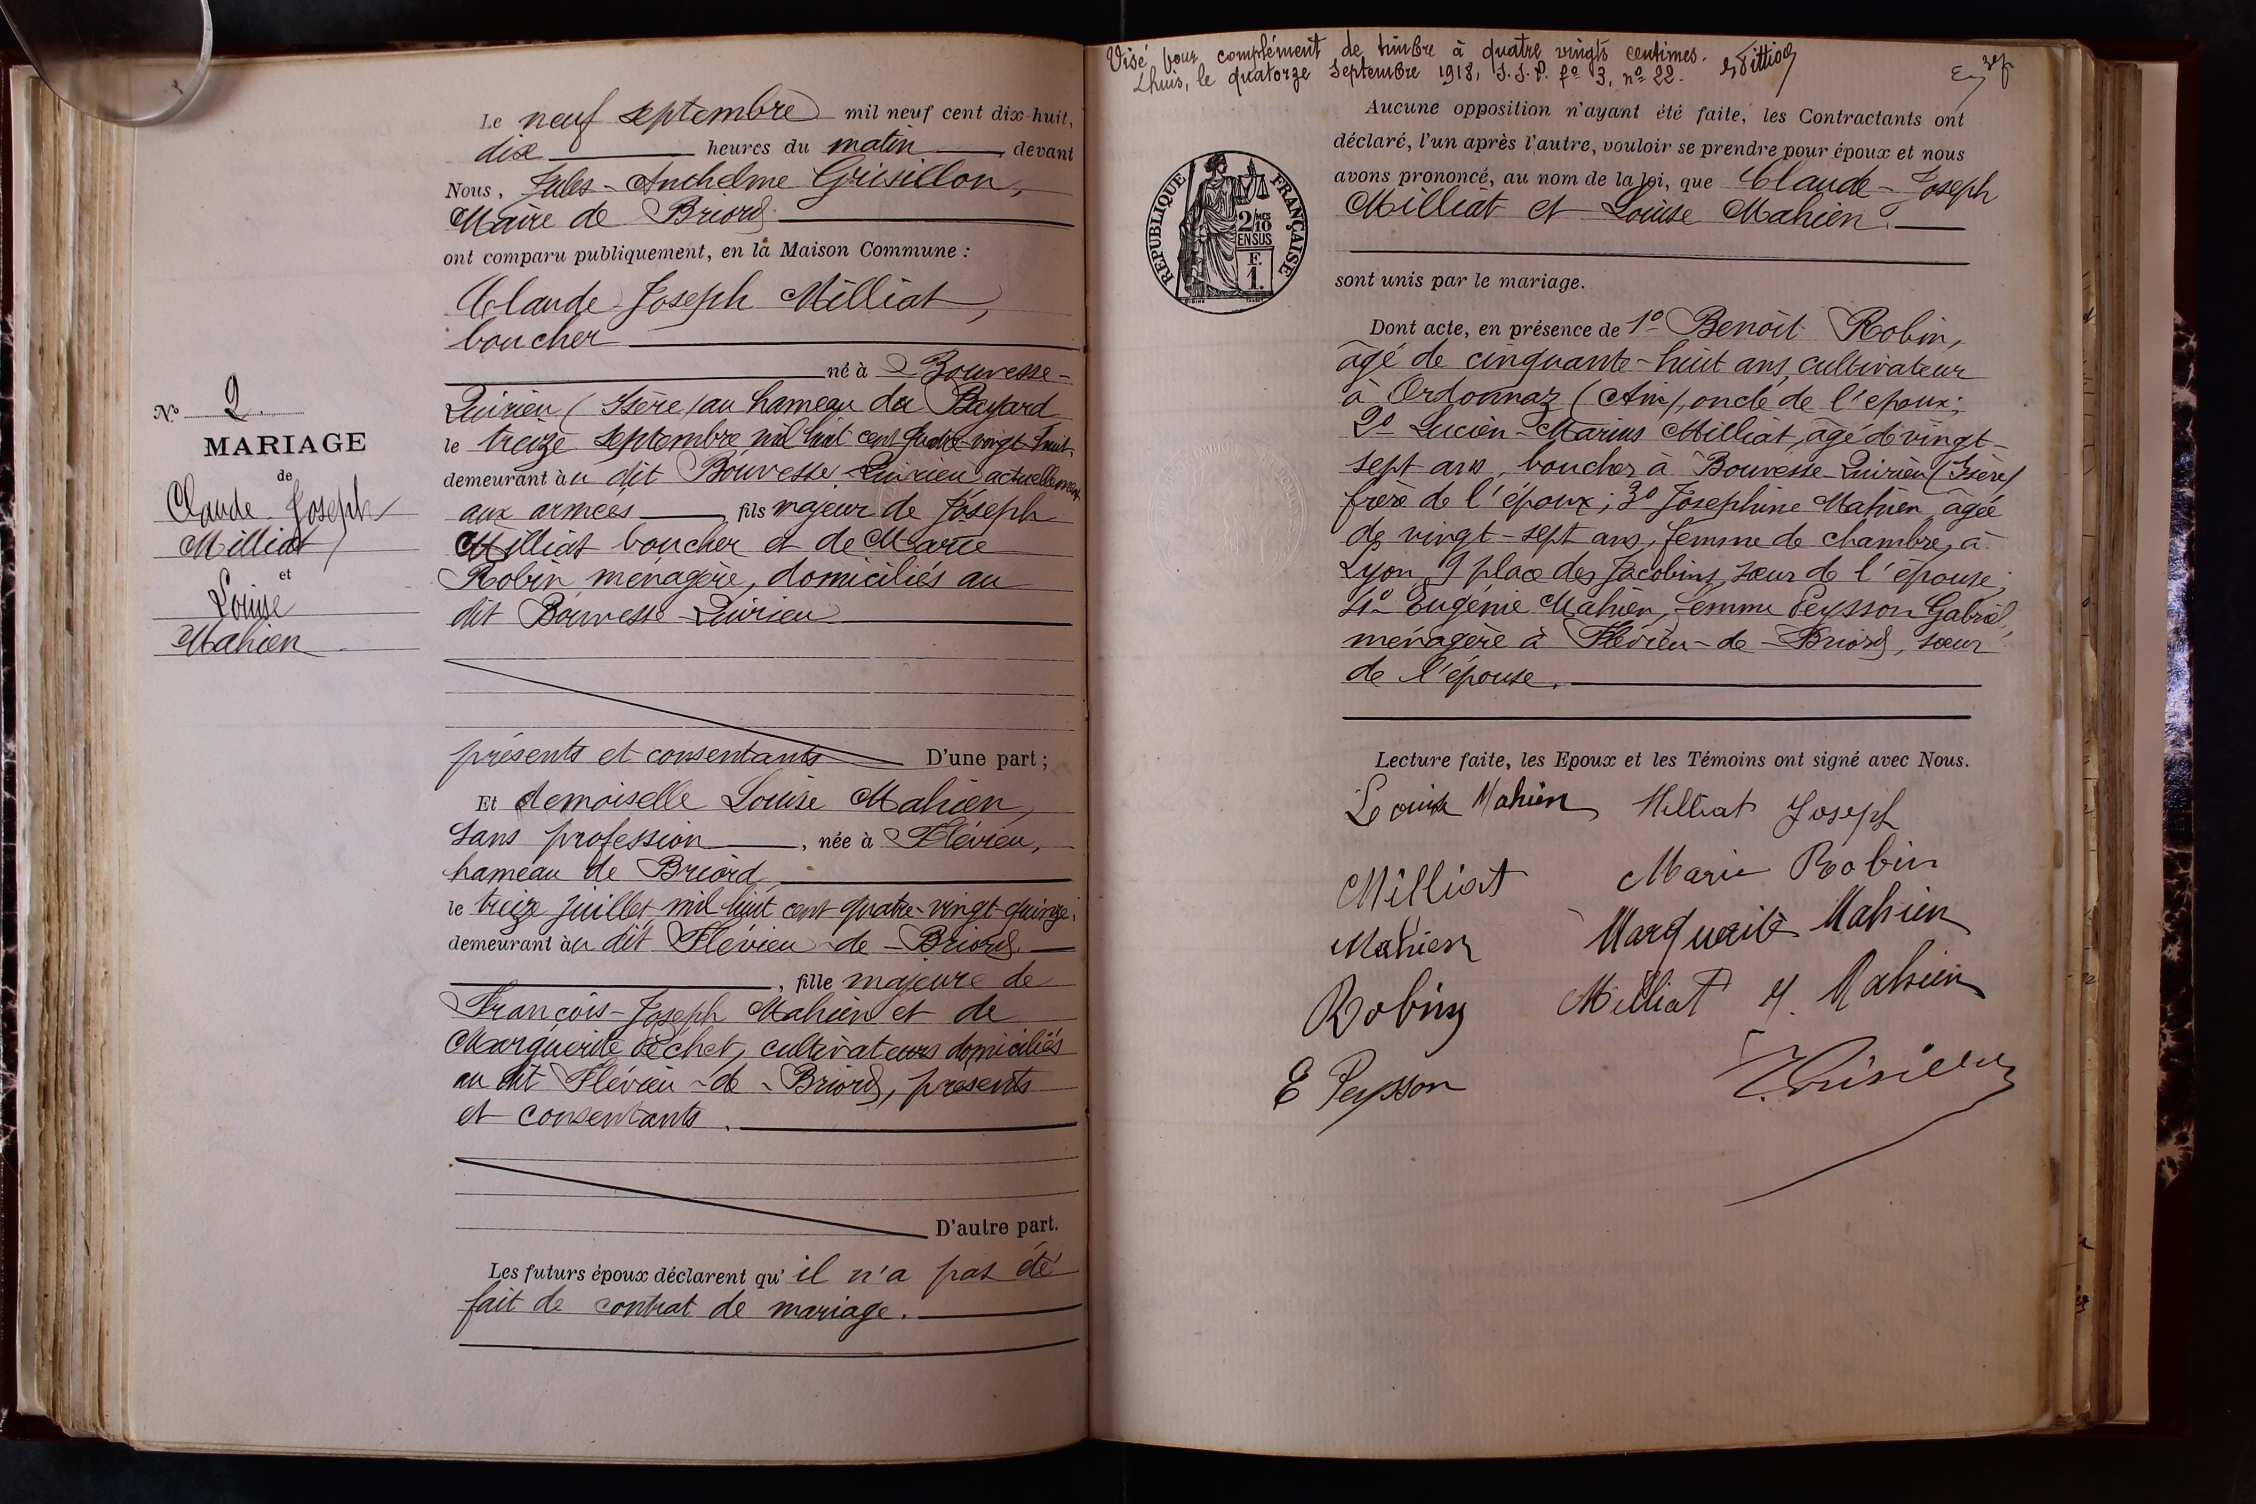 Le neuf septembre mil neuf cent dix-huit,
dix heures du matin, devant
Nous, Jules-Anthelme Grisillon,
Maire de Briord
ont comparu publiquement, en la Maison Commune :
Claude-Joseph Milliat,
boucher
né à Bouvesse-
Quirieu (Isère) au hameau du Bayard
le treize septembre mil huit cent quatre-vingt-huit,
demeurant au dit Bouvesse-Quirieu actuellement
aux armées, fils majeur de Joseph
Milliat boucher et de Marie
Robin ménagère, domiciliés au
dit Bouvesse-Quirieu
présents et consentants D'une part ;
Et demoiselle Louise Mahien,
sans profession, née à Flévieu,
hameau de Briord,
le treize juillet mil huit cent quatre-vingt-quinze,
demeurant au dit Flévieu-de-Briord
, fille majeure de
François-Joseph Mahien et de
Marguerite Pochet, cultivateurs domiciliés
au dit Flévieu-de-Briord, présents
et consentants.
D'autre part.
Les futurs époux déclarent qu'il n'a pas été
fait de contrat de mariage.
No 2.
MARIAGE
de
Claude-Joseph
Milliat
et
Louise
Mahien
Visé pour complément de timbre à quatre vingts centimes.
Lhuis, le quatorze Septembre 1918, S.S.P. fo 3, no 22.
RÉPUBLIQUE FRANÇAISE
2/10
EN SUS
F.
1.
Aucune opposition n'ayant été faite, les Contractants ont
déclaré, l'un après l'autre, vouloir se prendre pour époux et nous
avons prononcé, au nom de la loi, que Claude-Joseph
Milliat et Louise Mahien.
sont unis par le mariage.
Dont acte, en présence de 1o Benoît Robin,
âgé de cinquante-huit ans, cultivateur
à Ordonnaz (Ain), oncle de l'epoux;
2o Lucien-Marius Milliat, âgé de vingt-
sept ans, boucher à Bouvesse-Quirieu (Isère)
frère de l'époux; 3o Josephine Mahien, âgée
de vingt-sept ans, femme de chambre, à
Lyon, 9 place des Jacobins, sœur de l'épouse;
4o Eugénie Mahien, femme Peysson Gabriel,
ménagère à Flévieu-de-Briord, sœur
de l'épouse.
Lecture faite, les Epoux et les Témoins ont signé avec Nous.
Louise Mahien Milliat Joseph
Milliat Marie Robin
Mahien Marguerite Mahien
Robin Milliat Mahien
E Peysson Grisillon